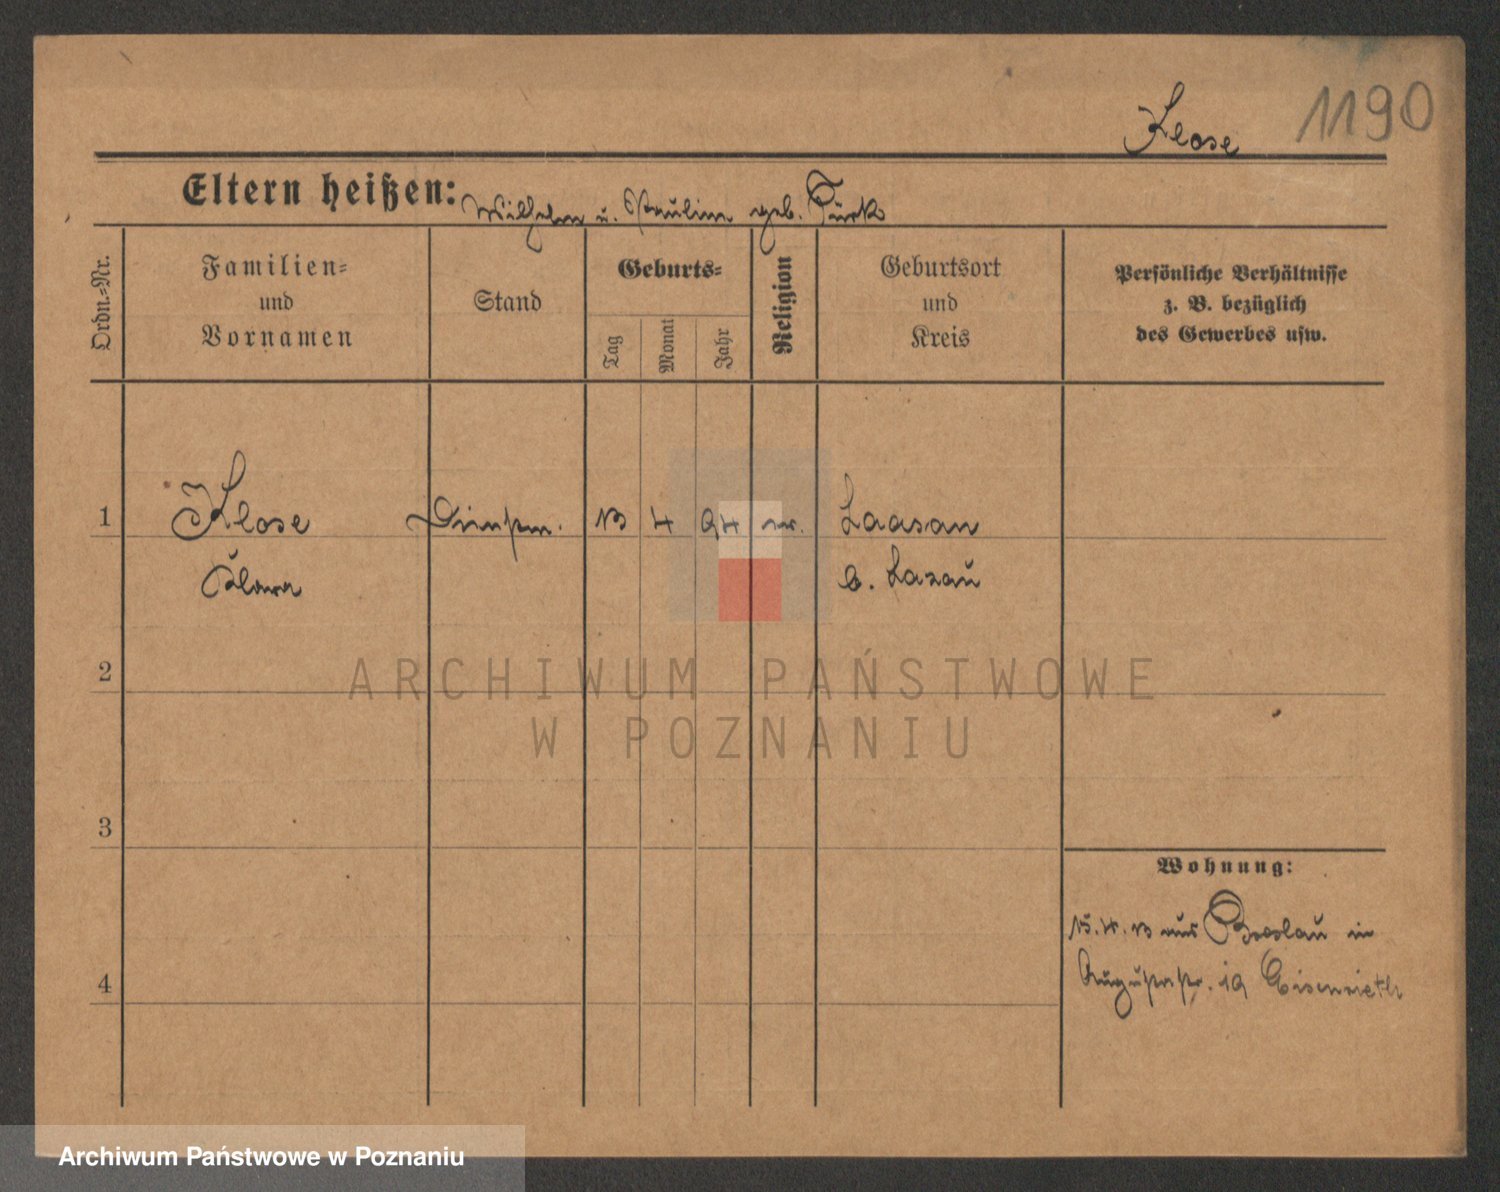 Klose 1190
Eltern heißen: Wilhelm u. Pauline geb. Türk
Ordn.-Nr.
Familien-
und
Vornamen
Stand
Geburts-
Tag
Monat
Jahr
Religion
Geburtsort
und
Kreis
Persönliche Verhältnisse
z. B. bezüglich
des Gewerbes usw.
1 Klose Dienstm. 13 4 94 ev. Laasan
Klara b. Lazaŭ
2
ARCHIWUM PAŃSTWOWE
W POZNANIU
3
Wohnung:
15. 4. 13 aus Breslau in
4 Augustastr. 19
Archiwum Państwowe w Poznaniu